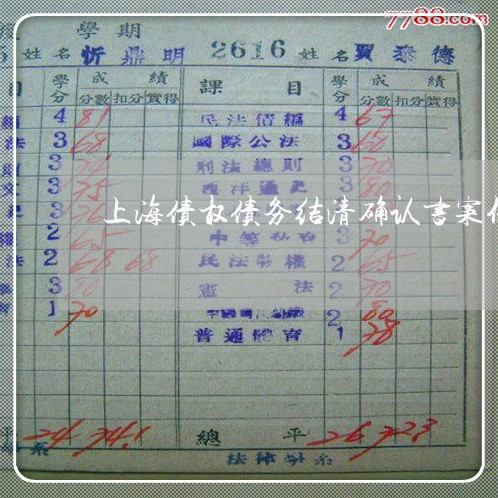 7788.com
學期
5 姓名 忻鼎明 2616 姓名 賈泰德
目 學分 成績 課目 學分 成績
分數 扣分 實得 分數 扣分 實得
編 4 81 民法債編 4 67
法 3 68 國際公法 3 60
3 刑法總則 3 70
文 3 75 西洋通史 3 80
上海债权债务结清确认书案
2 65 3 70
2 68 68 民法物權 2 65
3 80 憲法 2 70
1 70 2 80
普通體育 1 78
平 24 74.1 總平 26 72.3
系 法律學系